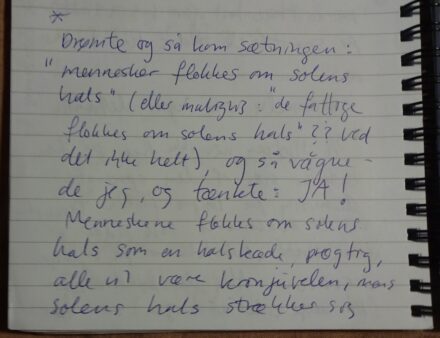 *
Drømte og så kom sætningen:
"mennesker flokkes om solens
hals" (eller muligvis: "de fattige
flokkes om solens hals"?? ved
det ikke helt), og så vågne-
de jeg, og tænkte: JA!
Menneskene flokkes om solens
hals som en halskæde, prægtig,
alle vil være kronjuvelen, mens
solens hals strækker sig